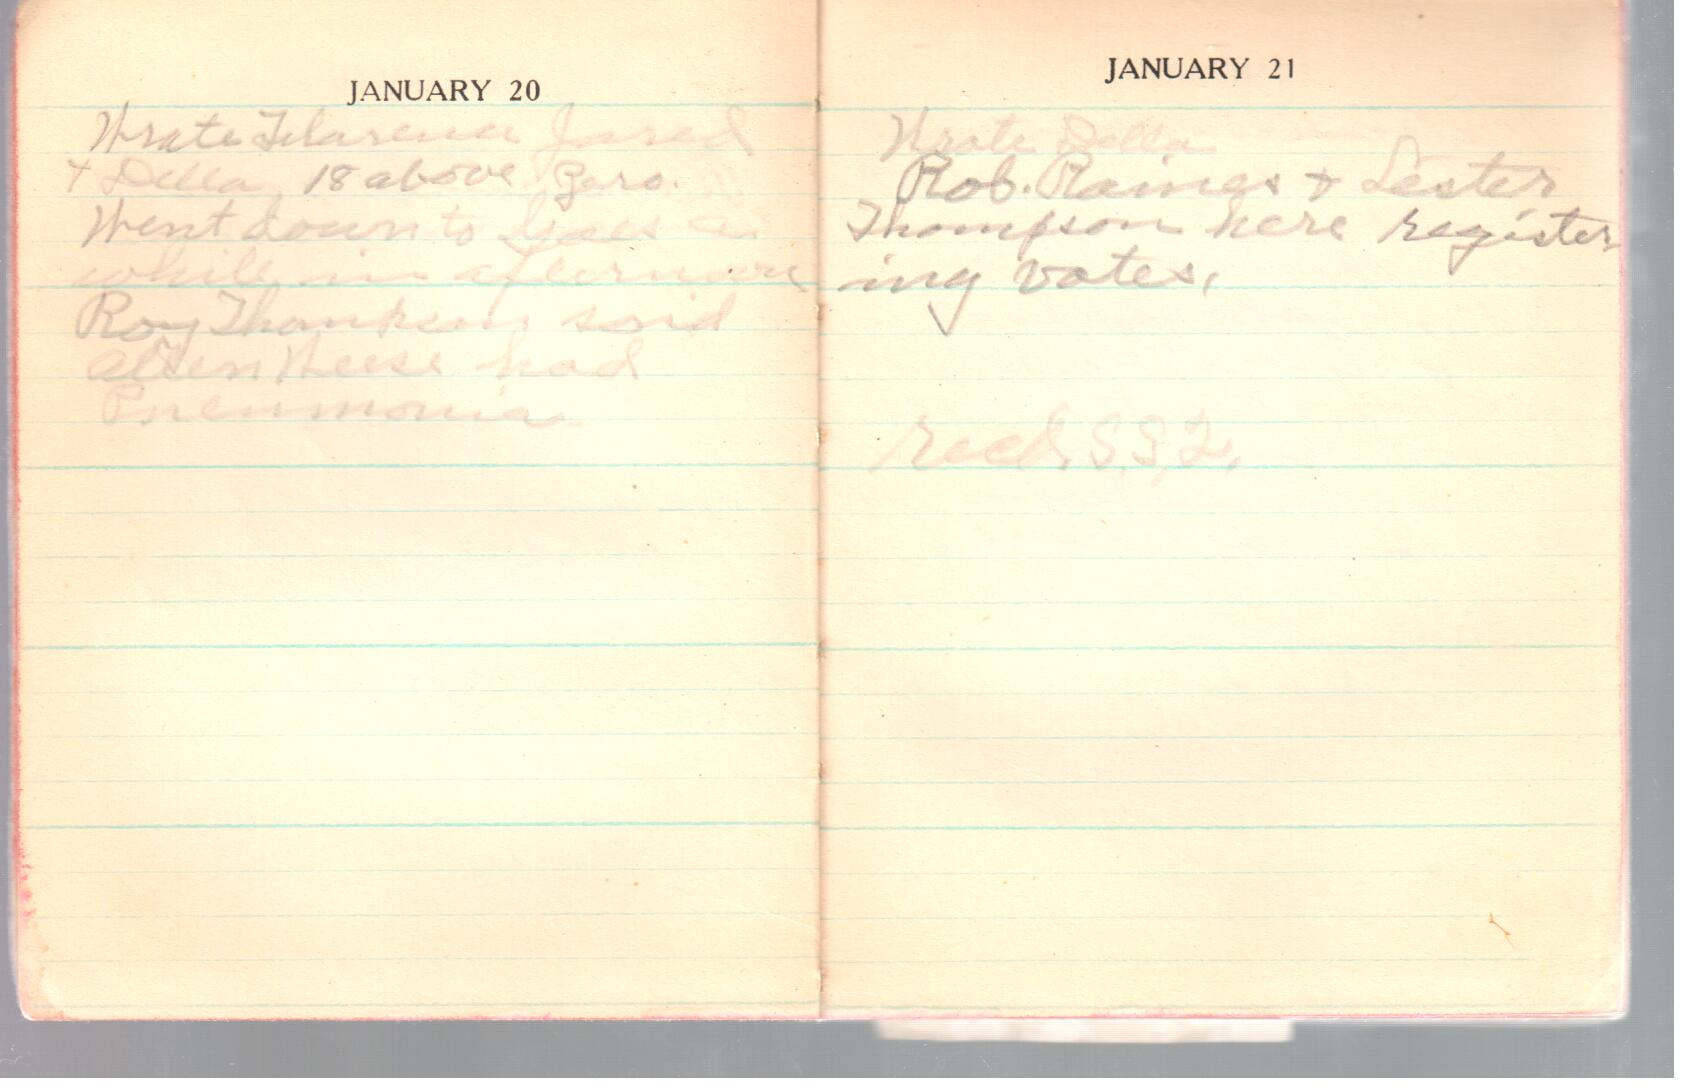 JANUARY 20
Wrote Florence Jared
+ Della 18 above Zero.
Went down to a
while in afternoon
Roy Thompson said
Reese had
Pneumonia
JANUARY 21
Wrote Della
Rob. Raines + Lester
Thompson here register
ing votes.
recd. S.S.